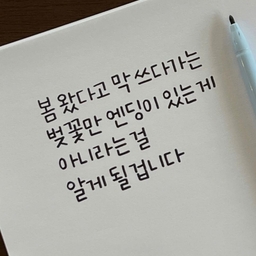 봄 왔다고 막 쓰다가는
벚꽃만 엔딩이 있는게
아니라는 걸
알게 될 겁니다